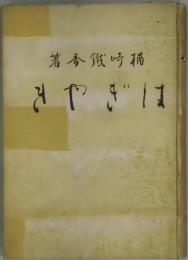 著香鐵崎楢
きやぎは